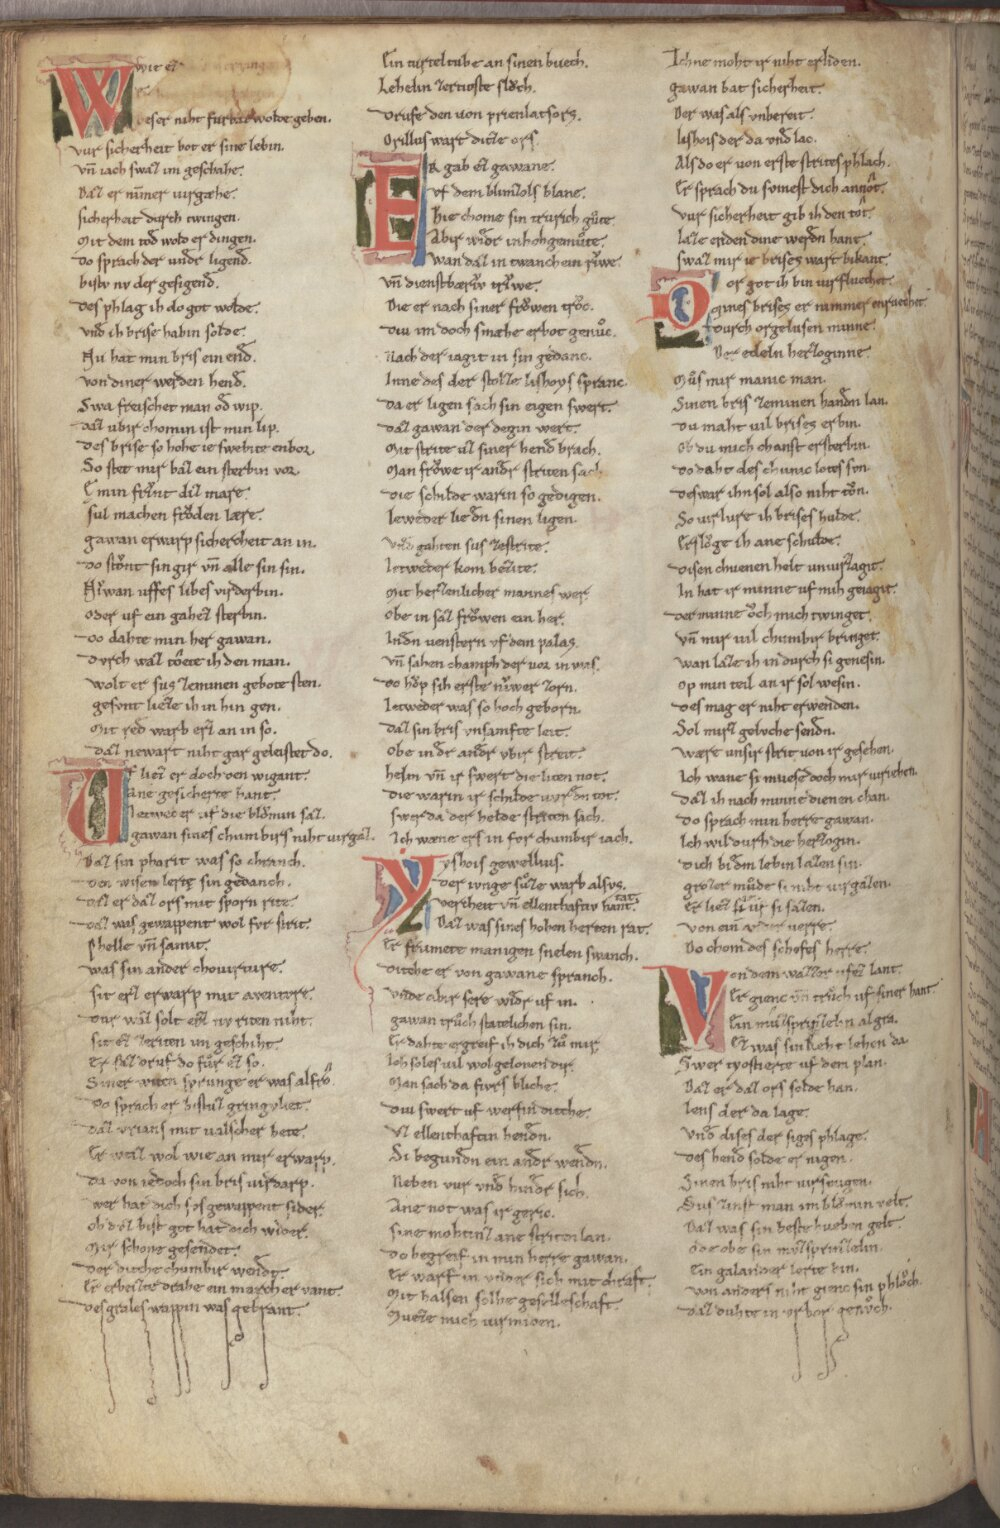 Wwie er
deser niht furbaz wolde geben.
vur sicherheit bot er sine lebin.
vn̄ iach swaz im geschahe.
Daz er nim̄er virgæhe.
sicherheit durch twingen.
Mit dem tod wold er dingen.
Do sprach der undr ligend̄.
bistv nv der gesigend̄.
Des phlag ih do got wolde.
vnd̄ ih brise habin solde.
Nu hat min bris ein end̄.
von diner werden hend̄.
Swa freischet man od̄ wip.
daz ubir chomin ist min lip.
des brise so hohe ie swebite enbor.
So stet mir baz ein sterbin vor.
E min frivnt diz mare.
sul machen frǒden lære.
gawan erwarp sicherheit an in.
do stǒnt sin gir vn̄ alle sin sin.
Niwan uffes libes virderbin.
oder uf ein gahez sterbin.
Do dahte min her gawan.
durch waz tǒete ih den man.
wolt er sus zeminen gebote sten.
gesvnt lieze ih in hin gen.
Mit red̄ warb erz an in so.
daz newart niht gar geleistet do.
Uf liez er doch den wigant.
ane gesicherte hant.
Ietweder uf die blǒmin saz.
gawan sines chumbirs niht virgaz.
Daz sin phærit was so chranch.
den wisen lerte sin gedanch.
daz er daz ors mit sporn rite.
daz was gewappent wol fvr strit.
Phelle vn̄ samit.
was sin ander chovirture.
sit erz erwarp mit aventvre.
dur waz solt ez nv riten niht.
sit ez zeriten im geschiht.
Er saz druf do fǔr ez so.
Siner witen sprunge er was al frǒ.
Do sprach er bistuz gringvliet.
daz vrians mit valscher bete.
Er weiz wol wie an mir erwarp.
da von iedoch sin bris virdarp.
wer hat dich sos gewappent sider.
ob dvz bist got hat dich wider.
Mir schone gesendet.
der diche chumbir wendet.
Er erbeizte drabe ein march er vant.
des grales wappin was gebrant.
Ein turteltube an sinen buech.
Lehelin zer tioste slǒch.
drufe den von prienlatsors.
Orillus wart ditze ors.
ER gab ez gawane.
vf dem blimzols plane.
Hie chome sin trurich gǔte
Abir widr in hohgemǔte.
wan daz in twanch ein rǐwe.
vn̄ dienstbærɍv trǐwe.
Die er nach siner frǒwen trǒc.
diu im doch smæhe erbot genǔc.
Nach der iagit in sin gedanc.
Inne des der stolze lishoys spranc.
da er ligen sach sin eigen swert.
daz gawan der degin wert.
Mit strite uz siner hend̄ brach.
Man frǒwe ir andr striten sach
die schilde warin so gedigen.
Ietweder lie dn̄ sinen ligen
vnd̄ gahten sus zestrite.
Ietweder kom bezite.
Mit herzenlicher mannes wer
Obe in saz frǒwen ein her.
In dn̄ venstern vf dem palas
vn̄ sahen champh der vor in was.
do hǒp sih erste niwer zorn.
Ietweder was so hoch geborn.
daz sin bris vnsamfte leit.
obe in dr̄ andr̄ vbir streit.
helm vn̄ ir swert die liten not.
die warin ir schilde vur dn̄ tot.
swer da der helde striten sach.
Ich wæne ers in for chumbir iach.
Lyshois gewellius.
der ivnge sǔze warb alsvs.
vreviheit vn̄ ellenthaftiv tat.
Daz was sines hohen herzen rat.
Er frumete manigen snelen swanch.
ditche er von gawane spranch.
vnde abir sere widr̄ uf in.
gawan trǔch stætelichen sin.
Er dahte ergreif ih dich zǔ mir
Ich soles vil wol gelonen dir.
Man sach da fivrs bliche.
diu swert uf werfin ditche.
Vz ellenthaftin hendn̄.
Si begundn̄ ein andr̄ wendn̄.
Neben vur vnd̄ hindr̄ sich.
Ane not was ir gerich.
sine mohtinz ane striten lan.
do begreif in min herre gawan.
Er warf in vnder sich mit chraft.
Mit halsen solhe geselleschaft.
Mueze mich virmiden.
Ichne moht ir niht erliden.
gawan bat sicherheit.
Der was als vnbereit.
lishois der da vnd̄ lac.
Als do er von erste strites phlach.
Er sprach du sǒmest dich an nǒt.
vur sicherheit gib ih den tǒt.
laze enden dine werdn̄ hant.
swaz mir ie brises wart bikant.
Vor got ih bin virfluechet.
mines brises er nimmer enruechet.
durch orgelusen minne.
Der edeln herzoginne.
Mǔs mir manic man.
Sinen bris zeminen handn̄ lan.
Du maht vil brises erbin.
ob du mich chanst ersterbin.
do daht des chunic lotes svn
deswar ihn sol also niht tǒn.
So virlure ih brises hulde.
Erslǒge ih ane schulde.
disen chuenen helt unvirzagit.
In hat ir minne uf mih geiagit.
der minne ǒch mich twinget.
vn̄ mir vil chumbir bringet.
wan laze ih in durch si genesin.
op min teil an ir sol wesin.
des mag er niht erwenden.
Sol mirz geluche sendn̄.
wære unsir strit von ir gesehen.
Ich wane si muese doch mir viriehen.
daz ih nach minne dienen chan.
do sprach min herre gawan.
Ich wil durh die herzogin.
dich bi dim lebin lazen sin.
grozer mǔde si niht virgazen.
Er liez in uf si sazen.
von ein verre.
Do chom des schefes herre.
Von dem wazzer uf ez lant.
Er gienc vn̄ trǔch uf siner hant
Ein mǔzsprinzelin al gra.
Ez was sin reht lehen da
Swer tyostierte uf dem plan.
Daz er daz ors solde han.
Iens der da lage.
vnd̄ dises der siges phlage.
des hend̄ solde er nigen.
Sinen bris niht virswigen.
Sus zinst man im blǒmin velt.
Daz was sin beste hueben gelt.
ode obe sin mǔzsprinzelin.
Ein galander lerte pin.
von anders niht gienc sin phlǒch.
daz duhte in vrbor genǒch.